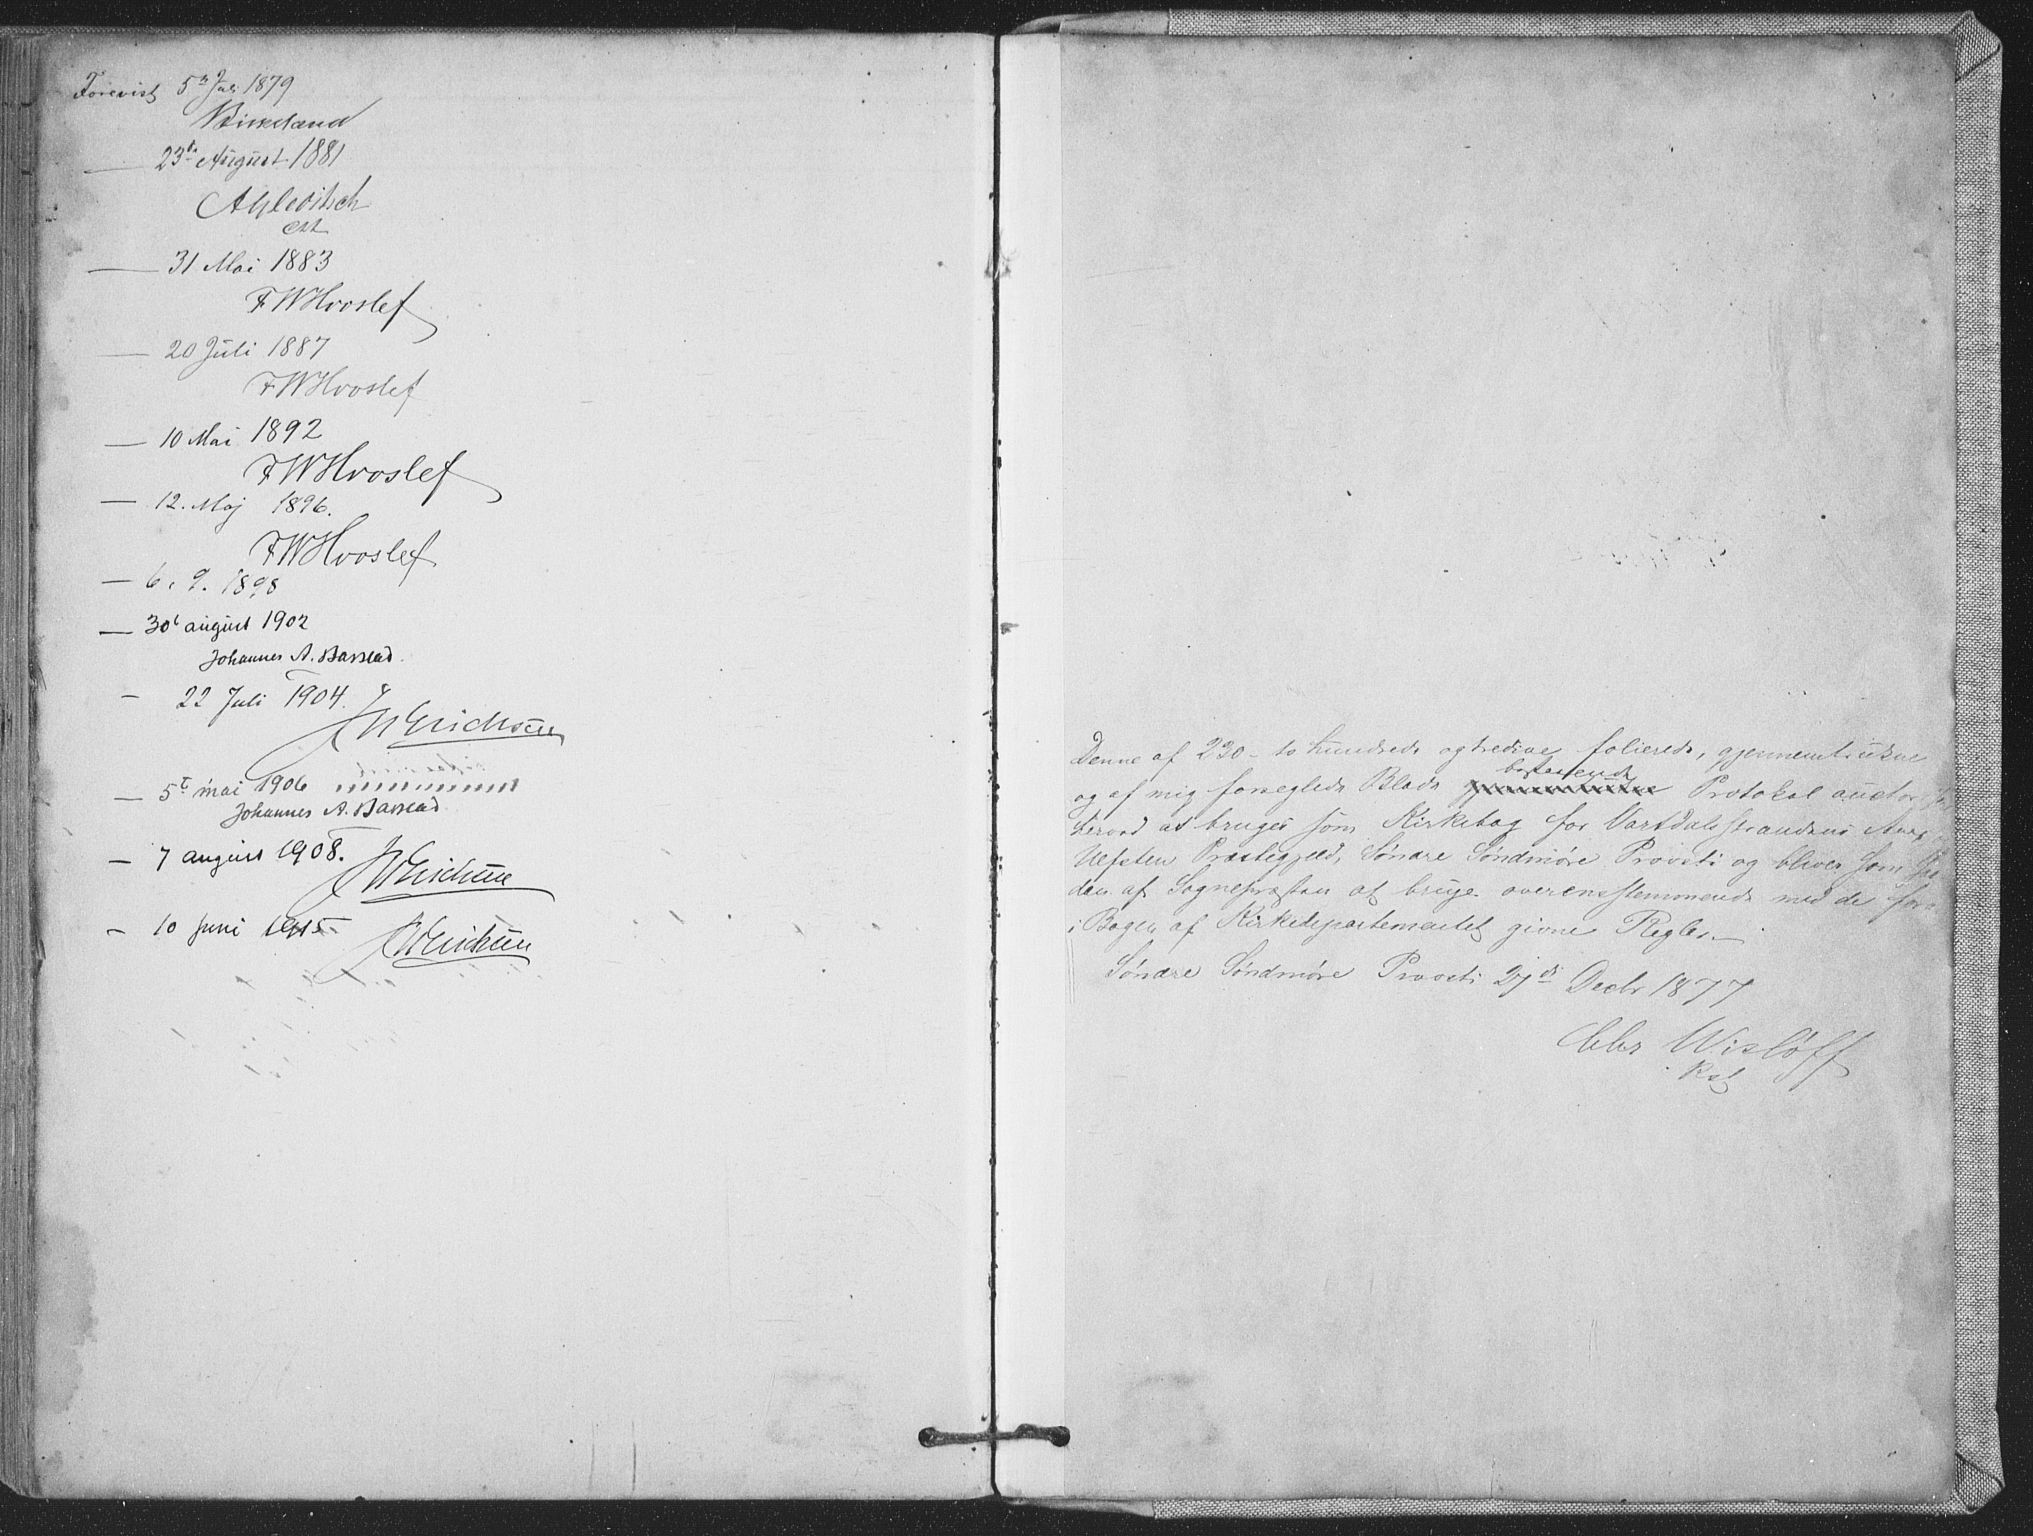 Forevist 5te Juli 1879
Birkeland
— 23de August 1881
— 31 Mai 1883
F W Hvoslef
— 20 Juli 1887
F W Hvoslef
— 10 Mai 1892
F W Hvoslef
— 12. Maj 1896.
F W Hvoslef
— 6. 9. 1898
— 30t august 1902
Johannes A. Barstad.
— 22 Juli 1904.
Erichsen
— 5t mai 1906
Johannes A. Barstad
— 7 august 1908.
Erichsen
— 10 Juni 1915
Erichsen
Denne af 230 - to hundrede og tredive folierede, gjennemtrukne
og af mig forseglede Blade bestaaende Protokol
herved at bruges som Kirkebog for Vartdalsstrandens
Ulfsten Præstegjæld, Søndre Søndmøre Provsti og bliver som
den af Sognepræsten at bruge overensstemmende med de
i Bogen af Kirkedepartementet givne Regler. —
Søndre Søndmøre Provsti 27de Decbr 1877
Chr Wisløff